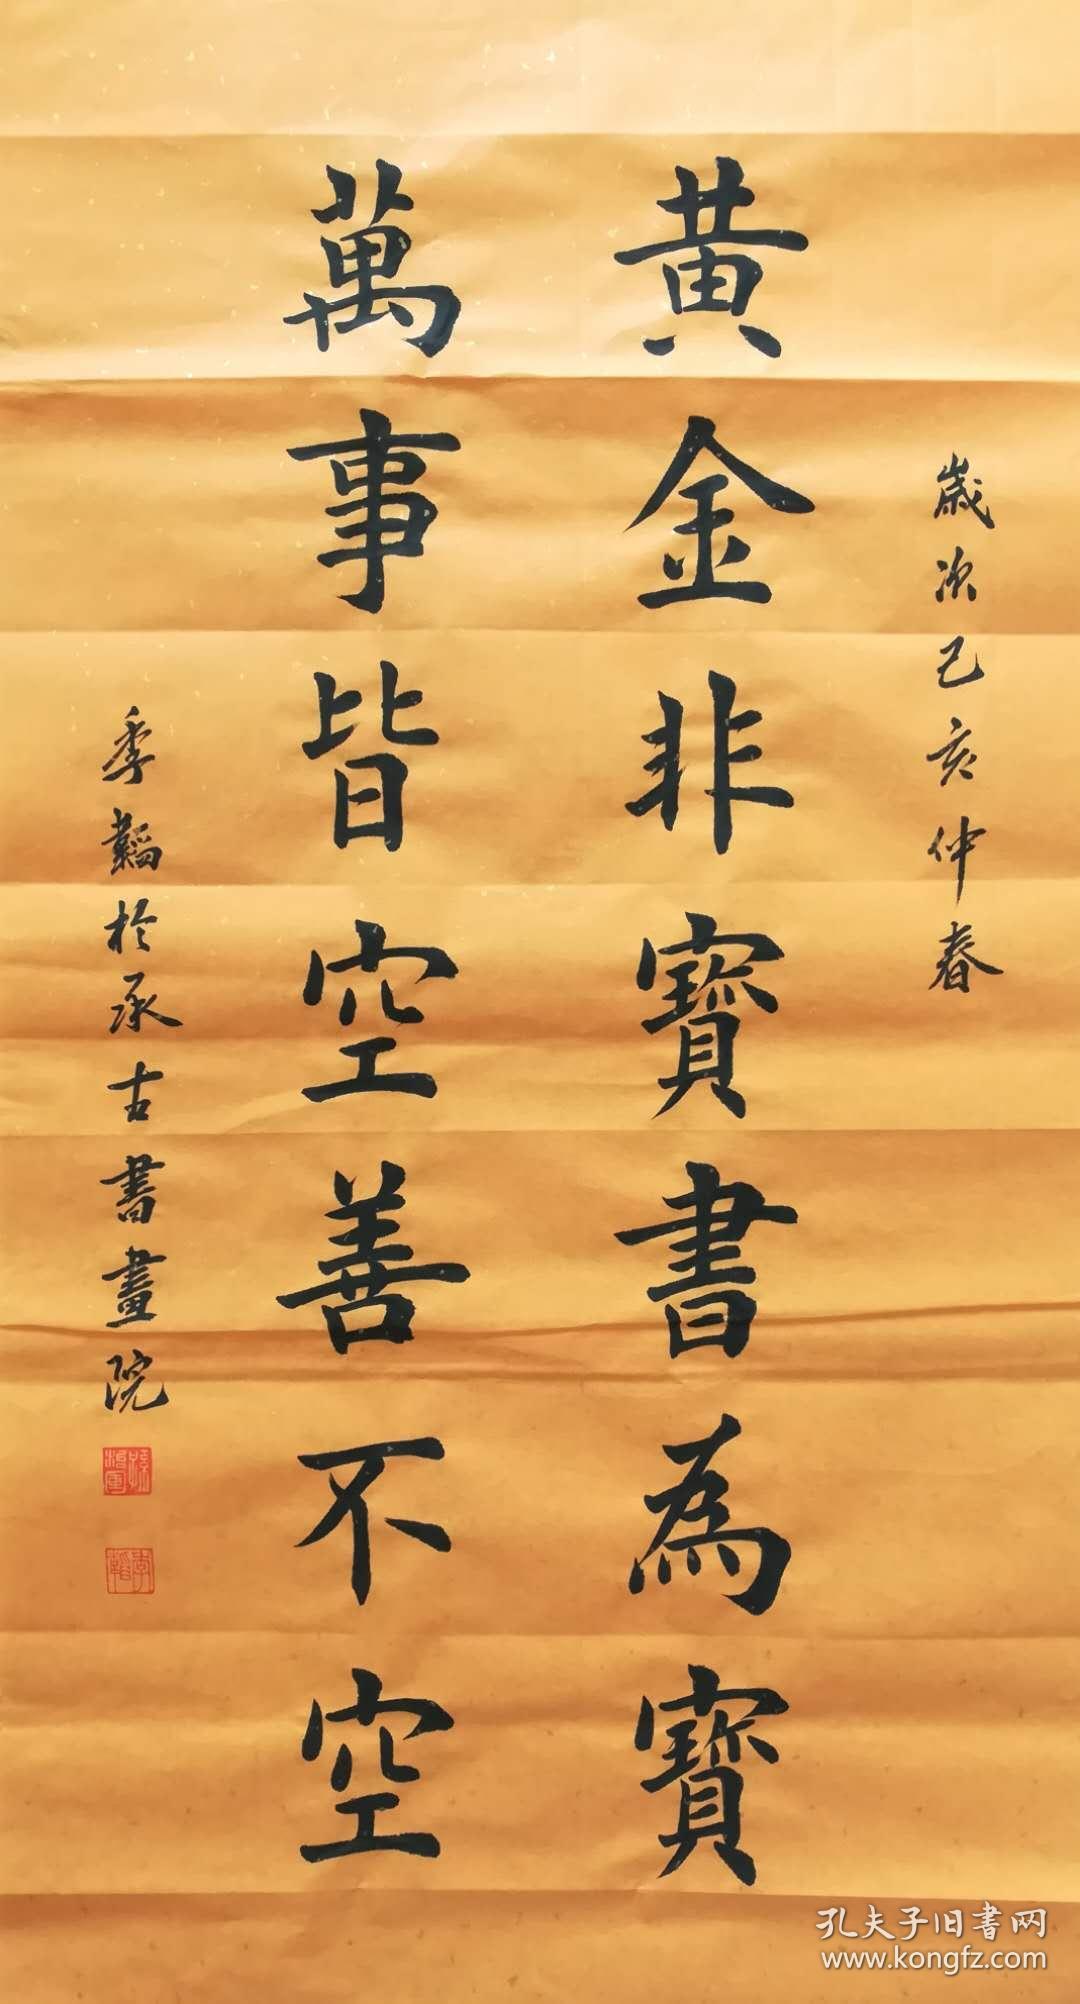 歲次己亥仲春
黄金非寳書為寳
萬事皆空善不空
季韜於承古書畫院
季韜
孔夫子旧书网
www.kongfz.com